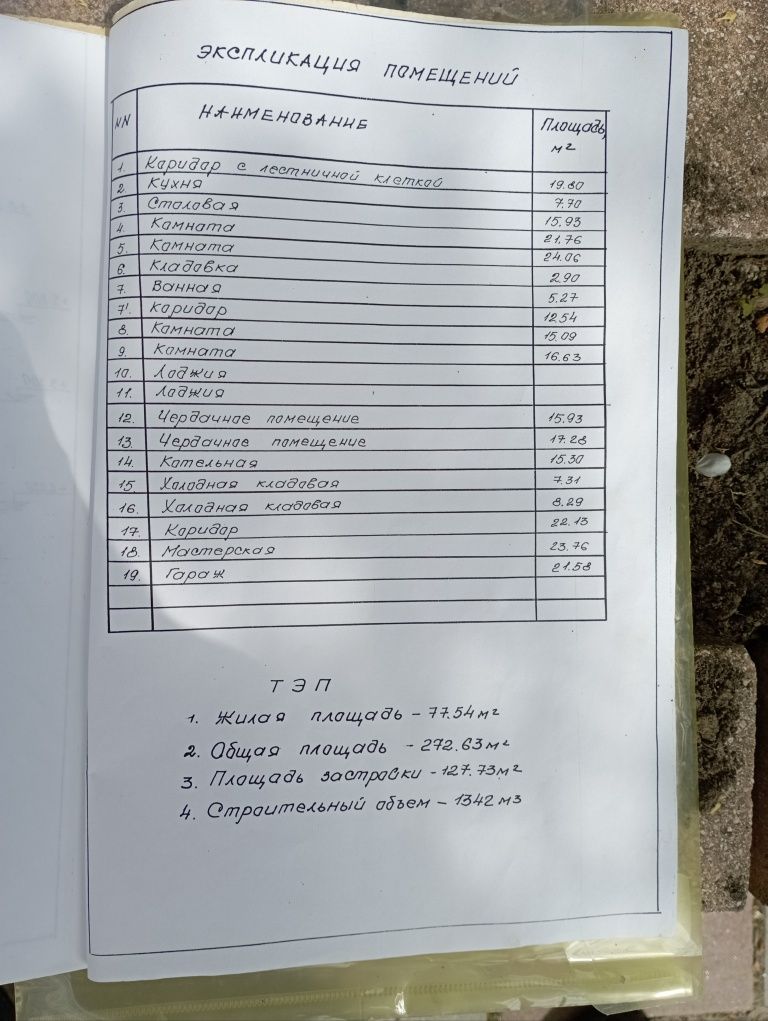 ЭКСПЛИКАЦИЯ ПОМЕЩЕНИЙ
NN НАИМЕНОВАНИЕ Площадь, м²
1. Коридор с лестничной клеткой 19.80
2. Кухня 7.70
3. Столовая 15.93
4. Комната 21.76
5. Комната 24.06
6. Кладовка 2.90
7. Ванная 5.27
7'. Коридор 12.54
8. Комната 15.09
9. Комната 16.63
10. Лоджия
11. Лоджия
12. Чердачное помещение 15.93
13. Чердачное помещение 17.28
14. Котельная 15.30
15 Холодная кладовая 7.31
16. Холодная кладовая 8.29
17. Коридор 22.13
18. Мастерская 23.76
19. Гараж 21.58
ТЭП
1. Жилая площадь - 77.54 м²
2. Общая площадь - 272.63 м²
3. Площадь застройки - 127.73 м²
4. Строительный объем - 1342 м3